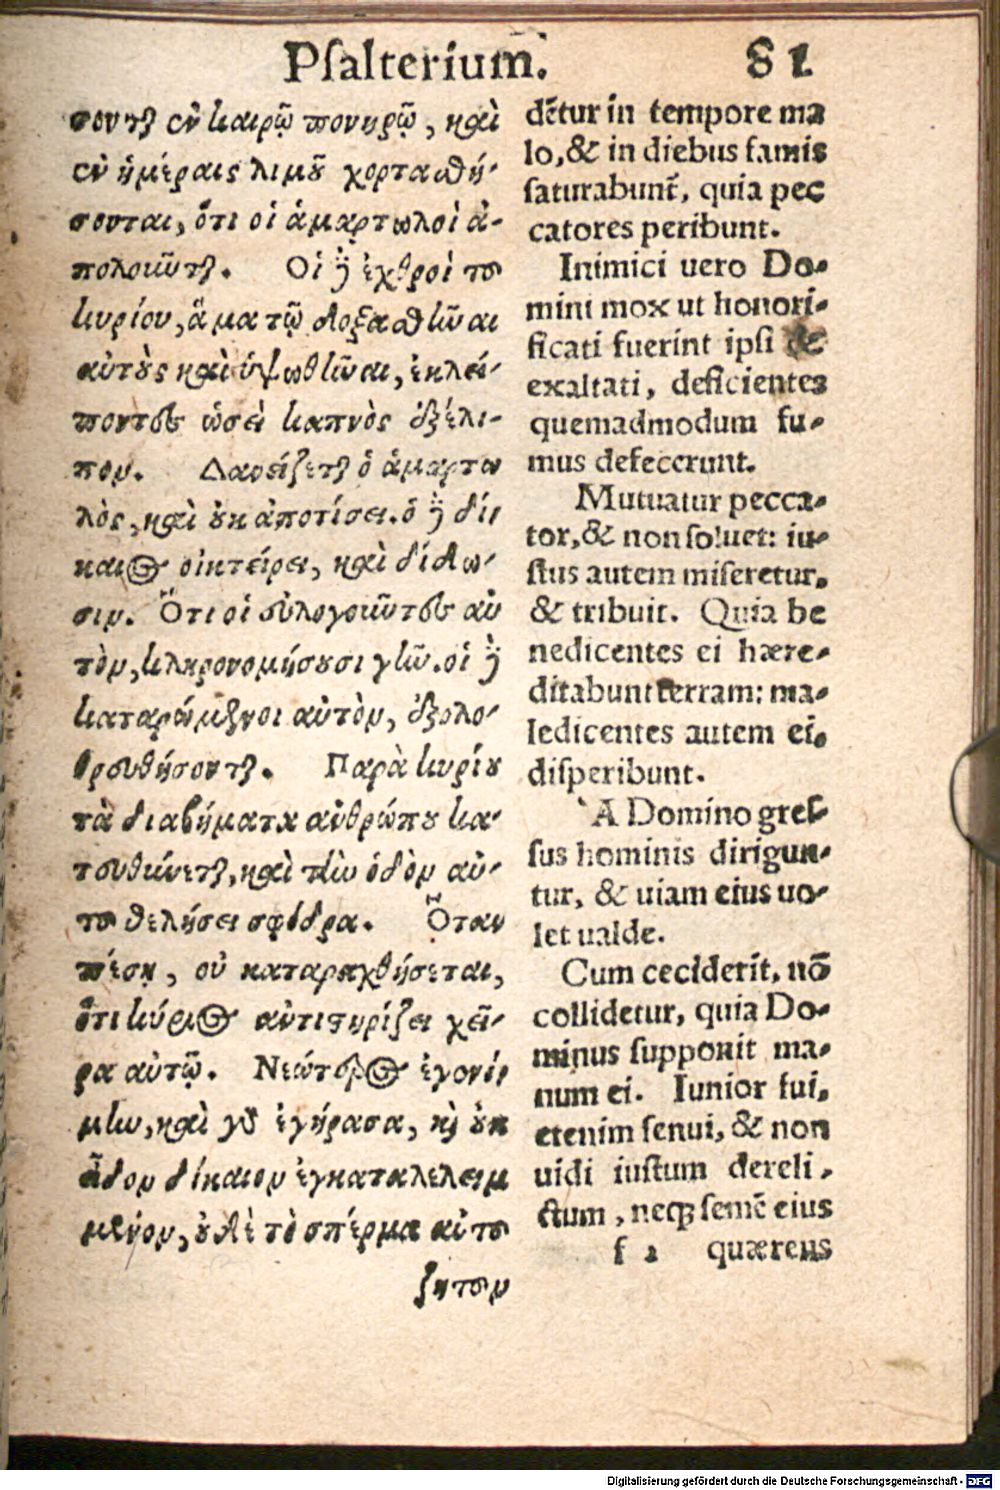 Psalterium. 81
σονται ἐν καιρῷ πονηρῷ, καὶ
ἐν ἡμέραις λιμοῦ χορτασθή-
σονται, ὅτι οἱ ἁμαρτωλοὶ ἀ-
πολοῦνται. Οἱ δὲ ἐχθροὶ τοῦ
κυρίου, ἅμα τῷ δοξασθῆναι
αὐτοὺς καὶ ὑψωθῆναι, ἐκλεί-
ποντες ὡσεὶ καπνὸς ἐξέλι-
πον. Δανείζεται ὁ ἁμαρτω
λὸς, καὶ οὐκ ἀποτίσει. ὁ δὲ δί-
καιος οἰκτείρει, καὶ δίδω-
σιν. Ὅτι οἱ εὐλογοῦντες αὐ
τὸν, κληρονομήσουσι γῆν. οἱ δὲ
καταρώμενοι αὐτὸν, ἐξολο-
θρευθήσονται. Παρὰ κυρίου
τὰ διαβήματα ἀνθρώπου κα-
τευθύνεται, καὶ τὴν ὁδὸν αὐ-
τοῦ θελήσει σφόδρα. Ὅταν
πέσῃ, οὐ καταραχθήσεται,
ὅτι κύριος ἀντιστηρίζει χεῖ-
ρα αὐτῷ. Νεώτερος ἐγενό-
μην, καὶ γὰρ ἐγήρασα, καὶ οὐκ
εἶδον δίκαιον ἐγκαταλελειμ
μένον, οὐδὲ τὸ σπέρμα αὐτοῦ
ζητοῦν
dētur in tempore ma
lo, & in diebus famis
saturabunt̄, quia pec
catores peribunt.
Inimici uero Do-
mini mox ut honori-
ficati fuerint ipsi &
exaltati, deficientes
quemadmodum fu-
mus defecerunt.
Mutuatur pecca-
tor, & non soluet: iu-
stus autem miseretur,
& tribuit. Quia be
nedicentes ei hære-
ditabunt terram: ma-
ledicentes autem ei,
disperibunt.
A Domino gres-
sus hominis dirigun-
tur, & uiam eius uo-
let ualde.
Cum ceciderit, nō
collidetur, quia Do-
minus supponit ma-
num ei. Iunior fui,
etenim senui, & non
uidi iustum dereli-
ctum, neqꝫ semē eius
f 2 quærens
Digitalisierung gefördert durch die Deutsche Forschungsgemeinschaft - DFG